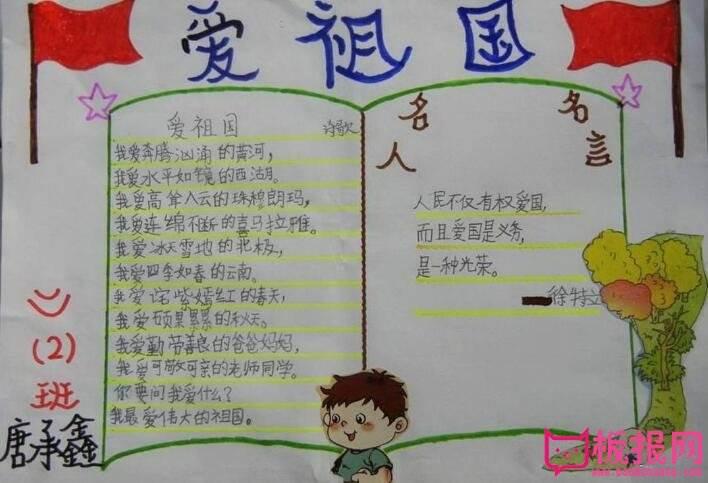 爱祖国
爱祖国 诗歌
我爱奔腾汹涌的黄河，
我爱水平如镜的西湖。
我爱高耸入云的珠穆朗玛，
我爱连绵不断的喜马拉雅。
我爱冰天雪地的北极，
我爱四季如春的云南。
我爱诧紫嫣红的春天，
我爱硕果累累的秋天。
我爱勤劳善良的爸爸妈妈，
我爱可敬可亲的老师同学。
你要问我爱什么？
我最爱伟大的祖国。
名人名言
人民不仅有权爱国，
而且爱国是义务，
是一种光荣。
——徐特立
(2)
班
唐承鑫
板报网